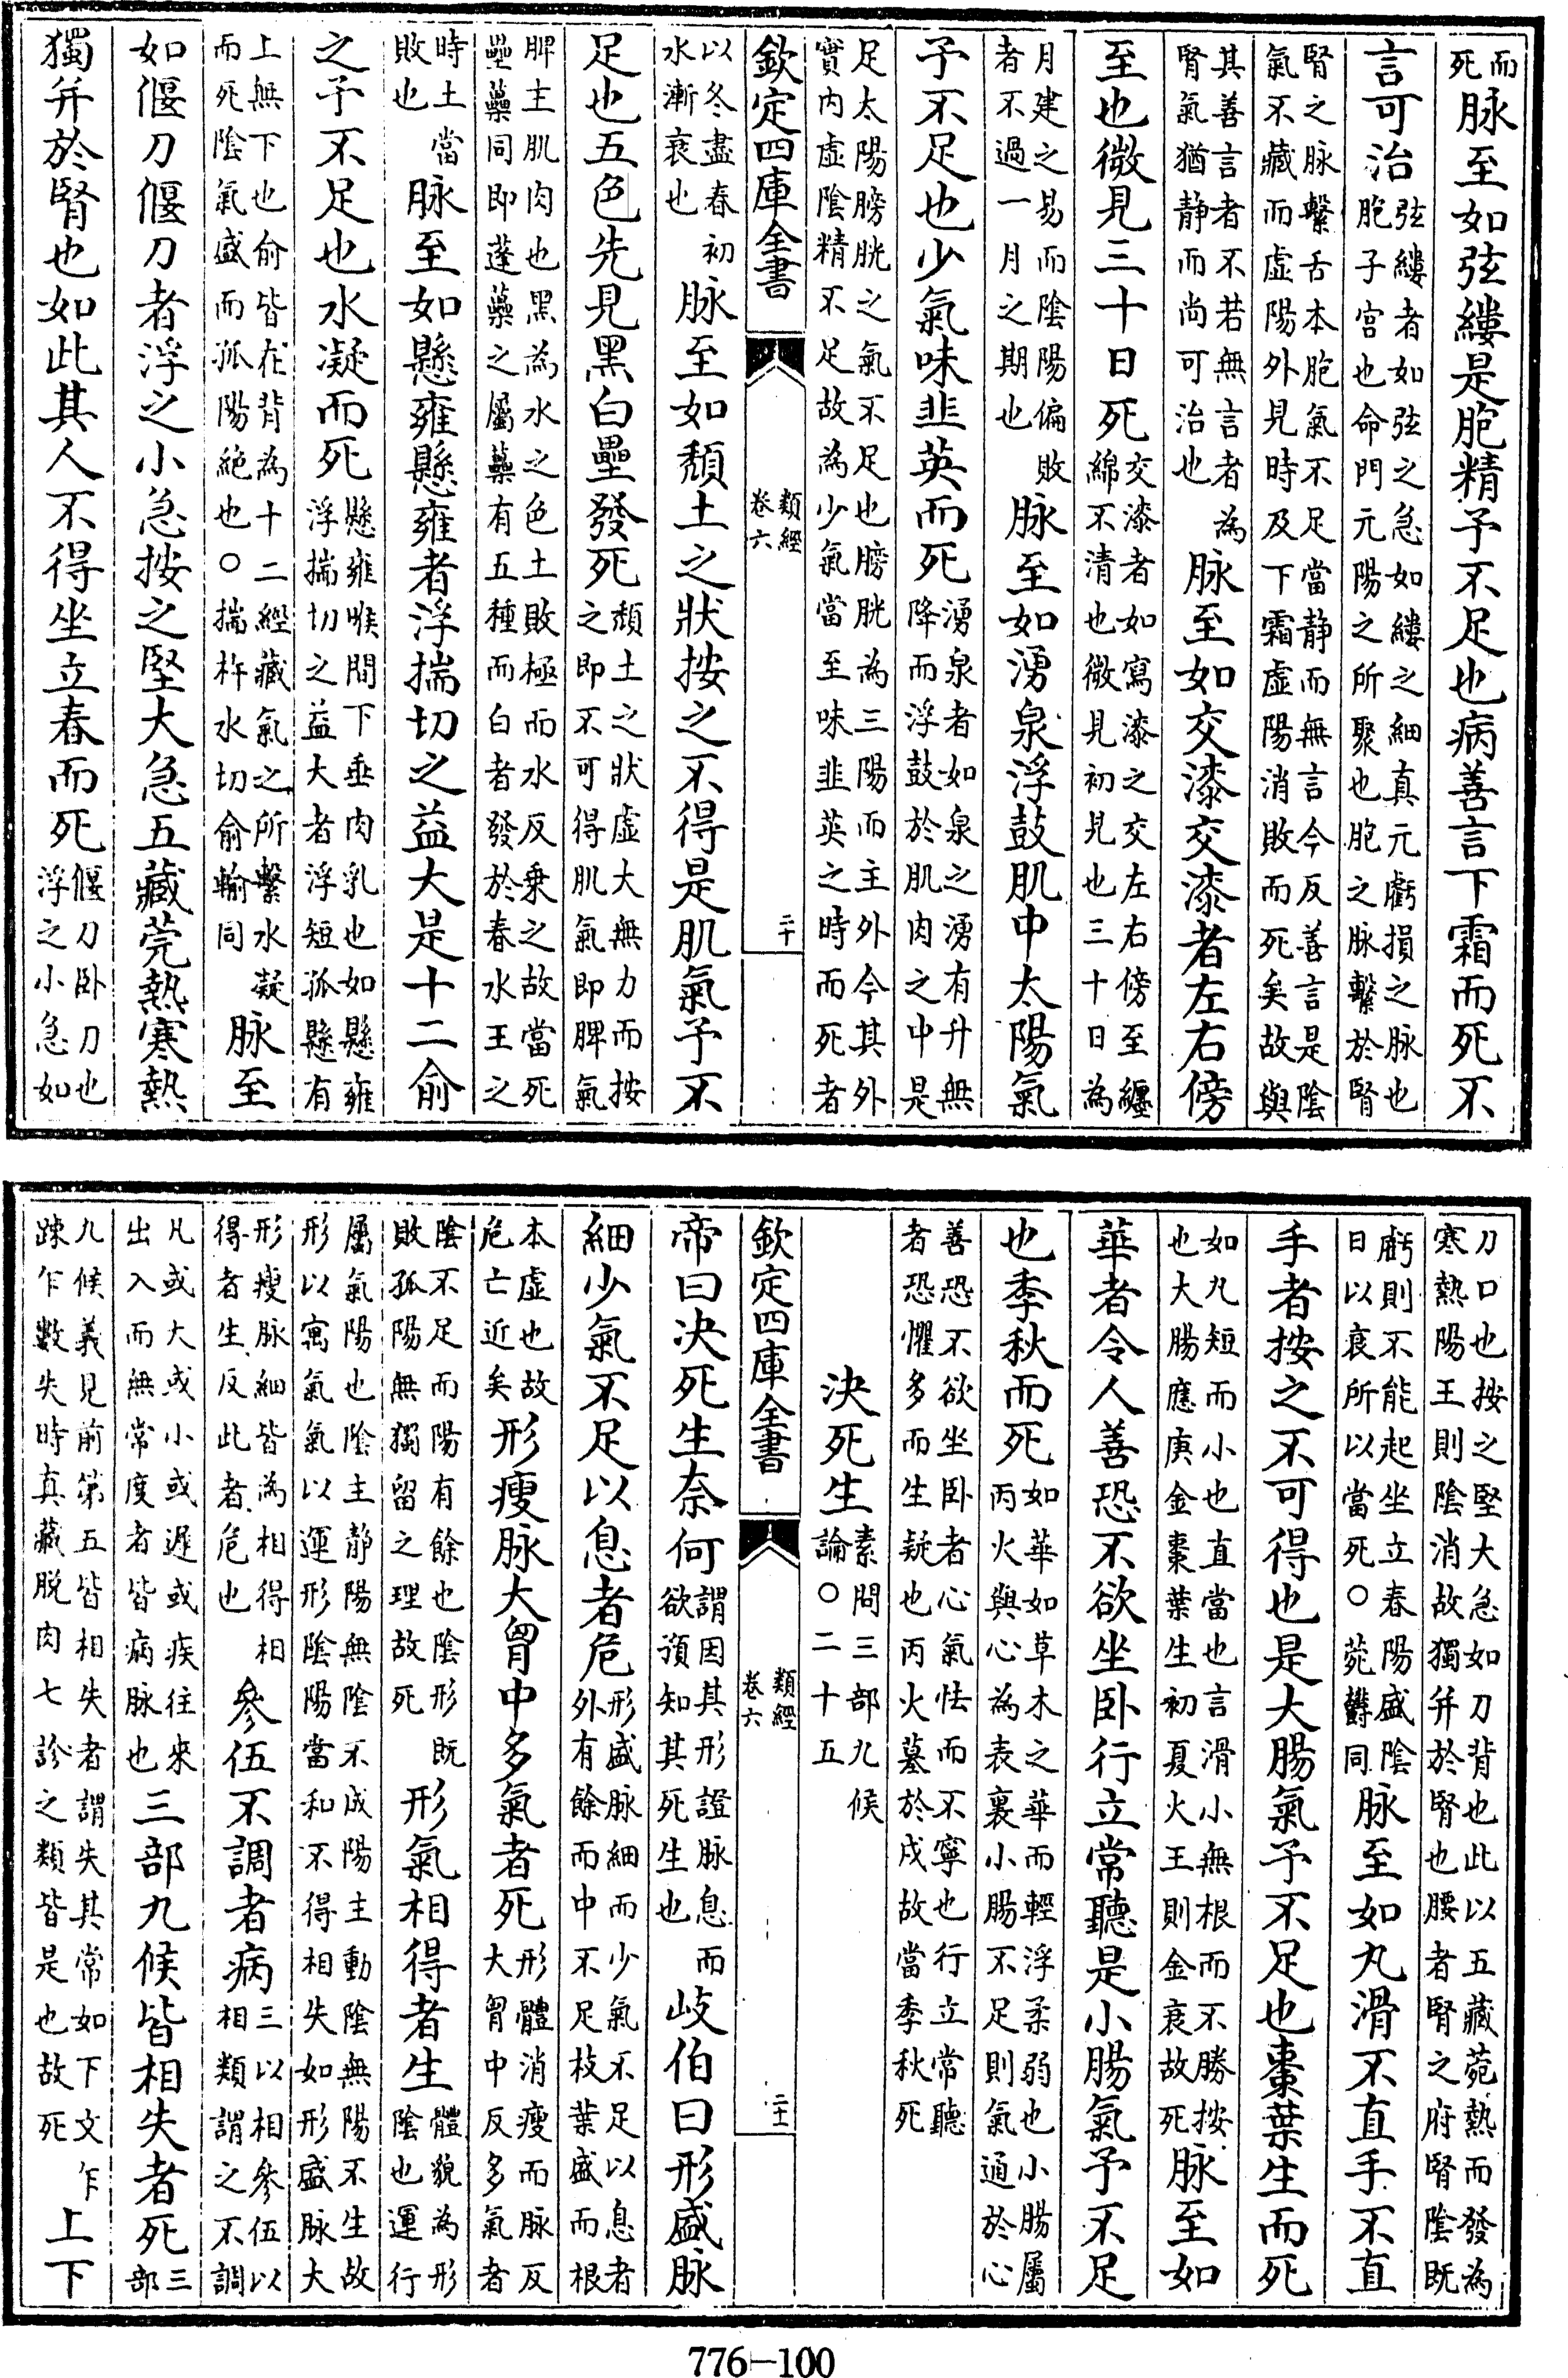 而死脉至如弦縷是胞精予不足也病善言下霜而死不
言可治弦縷者如弦之急如縷之細真元虧損之脉也胞子宫也命門元陽之所聚也胞之脉繫於腎
腎之脉繫舌本胞氣不足當静而無言今反善言是陰氣不藏而虚陽外見時及下霜虚陽消敗而死矣故與
其善言者不若無言者為腎氣猶静而尚可治也脉至如交漆交漆者左右傍
至也微見三十日死交漆者如寫漆之交左右傍至纏綿不清也微見初見也三十日為
月建之易而陰陽偏敗者不過一月之期也脉至如湧泉浮鼓肌中太陽氣
予不足也少氣味韭英而死湧泉者如泉之湧有升無降而浮鼓於肌肉之中是
足太陽膀胱之氣不足也膀胱為三陽而主外今其外實内虚陰精不足故為少氣當至味韭英之時而死者
欽定四庫全書 類經卷六 二十
以冬盡春初水漸衰也脉至如頽土之狀按之不得是肌氣予不
足也五色先見黑白壘發死頽土之狀虚大無力而按之即不可得肌氣即脾氣
脾主肌肉也黑為水之色土敗極而水反乗之故當死壘虆同即蓬虆之屬虆有五種而白者發於春水王之
時土當敗也脉至如懸雍懸雍者浮揣切之益大是十二俞
之予不足也水凝而死懸雍喉間下垂肉乳也如懸雍浮揣切之益大者浮短孤懸有
上無下也俞皆在背為十二經藏氣之所繫水凝而死陰氣盛而孤陽絶也○揣杵水切俞輸同脉至
如偃刀偃刀者浮之小急按之堅大急五藏菀熱寒熱
獨并於腎也如此其人不得坐立春而死偃刀卧刀也浮之小急如
刀口也按之堅大急如刀背也此以五藏菀熱而發為寒熱陽王則陰消故獨并於腎也腰者腎之府腎陰既
虧則不能起坐立春陽盛陰日以衰所以當死○菀鬱同脉至如丸滑不直手不直
手者按之不可得也是大腸氣予不足也棗葉生而死
如丸短而小也直當也言滑小無根而不勝按也大腸應庚金棗葉生初夏火王則金衰故死脉至如
華者令人善恐不欲坐卧行立常聽是小腸氣予不足
也季秋而死如華如草木之華而輕浮柔弱也小腸屬丙火與心為表裏小腸不足則氣通於心
善恐不欲坐卧者心氣怯而不寧也行立常聽者恐懼多而生疑也丙火墓於戌故當季秋死
決死生素問三部九候論○二十五
欽定四庫全書 類經卷六 二十一
帝曰决死生奈何謂因其形證脉息而欲預知其死生也岐伯曰形盛脉
細少氣不足以息者危形盛脉細而少氣不足以息者外有餘而中不足枝葉盛而根
本虚也故危亡近矣形瘦脉大胷中多氣者死形體消瘦而脉反大胷中反多氣者
陰不足而陽有餘也陰形既敗孤陽無獨留之理故死形氣相得者生體貌為形陰也運行
屬氣陽也陰主静陽無陰不成陽主動陰無陽不生故形以寓氣氣以運形陰陽當和不得相失如形盛脉大
形瘦脉細皆為相得相得者生反此者危也參伍不調者病三以相參伍以相類謂之不調
凡或大或小或遲或疾往來出入而無常度者皆病脉也三部九候皆相失者死三部
九候義見前第五皆相失者謂失其常如下文乍踈乍數失時真藏脱肉七診之類皆是也故死上下
776-100